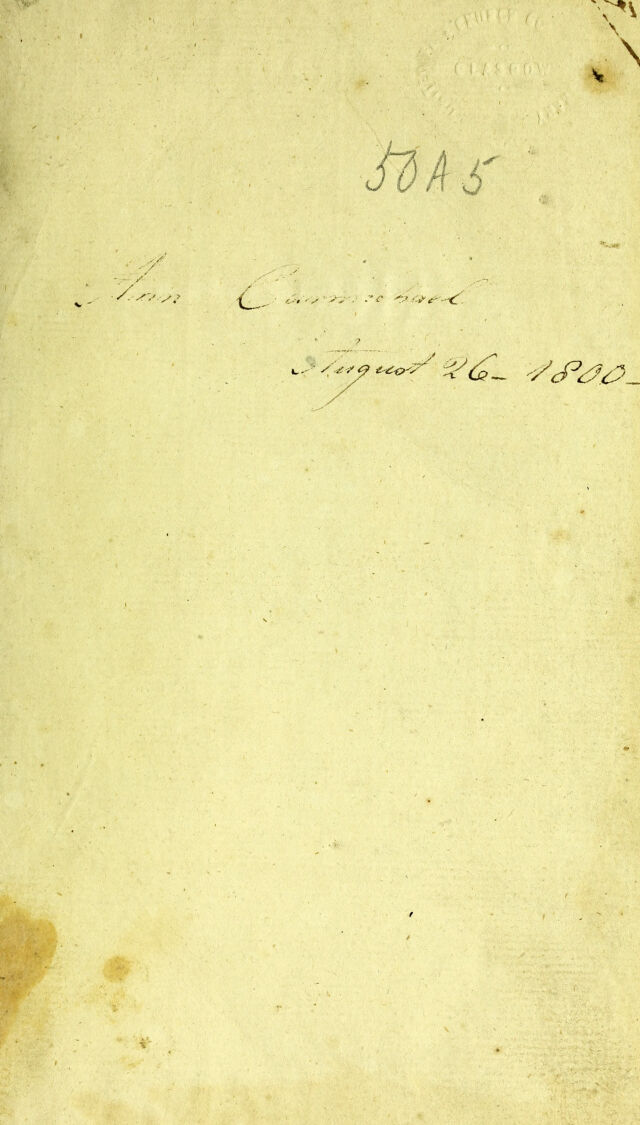 GLASGOW
50A5
Ann Carmichael
August 26- 1800-